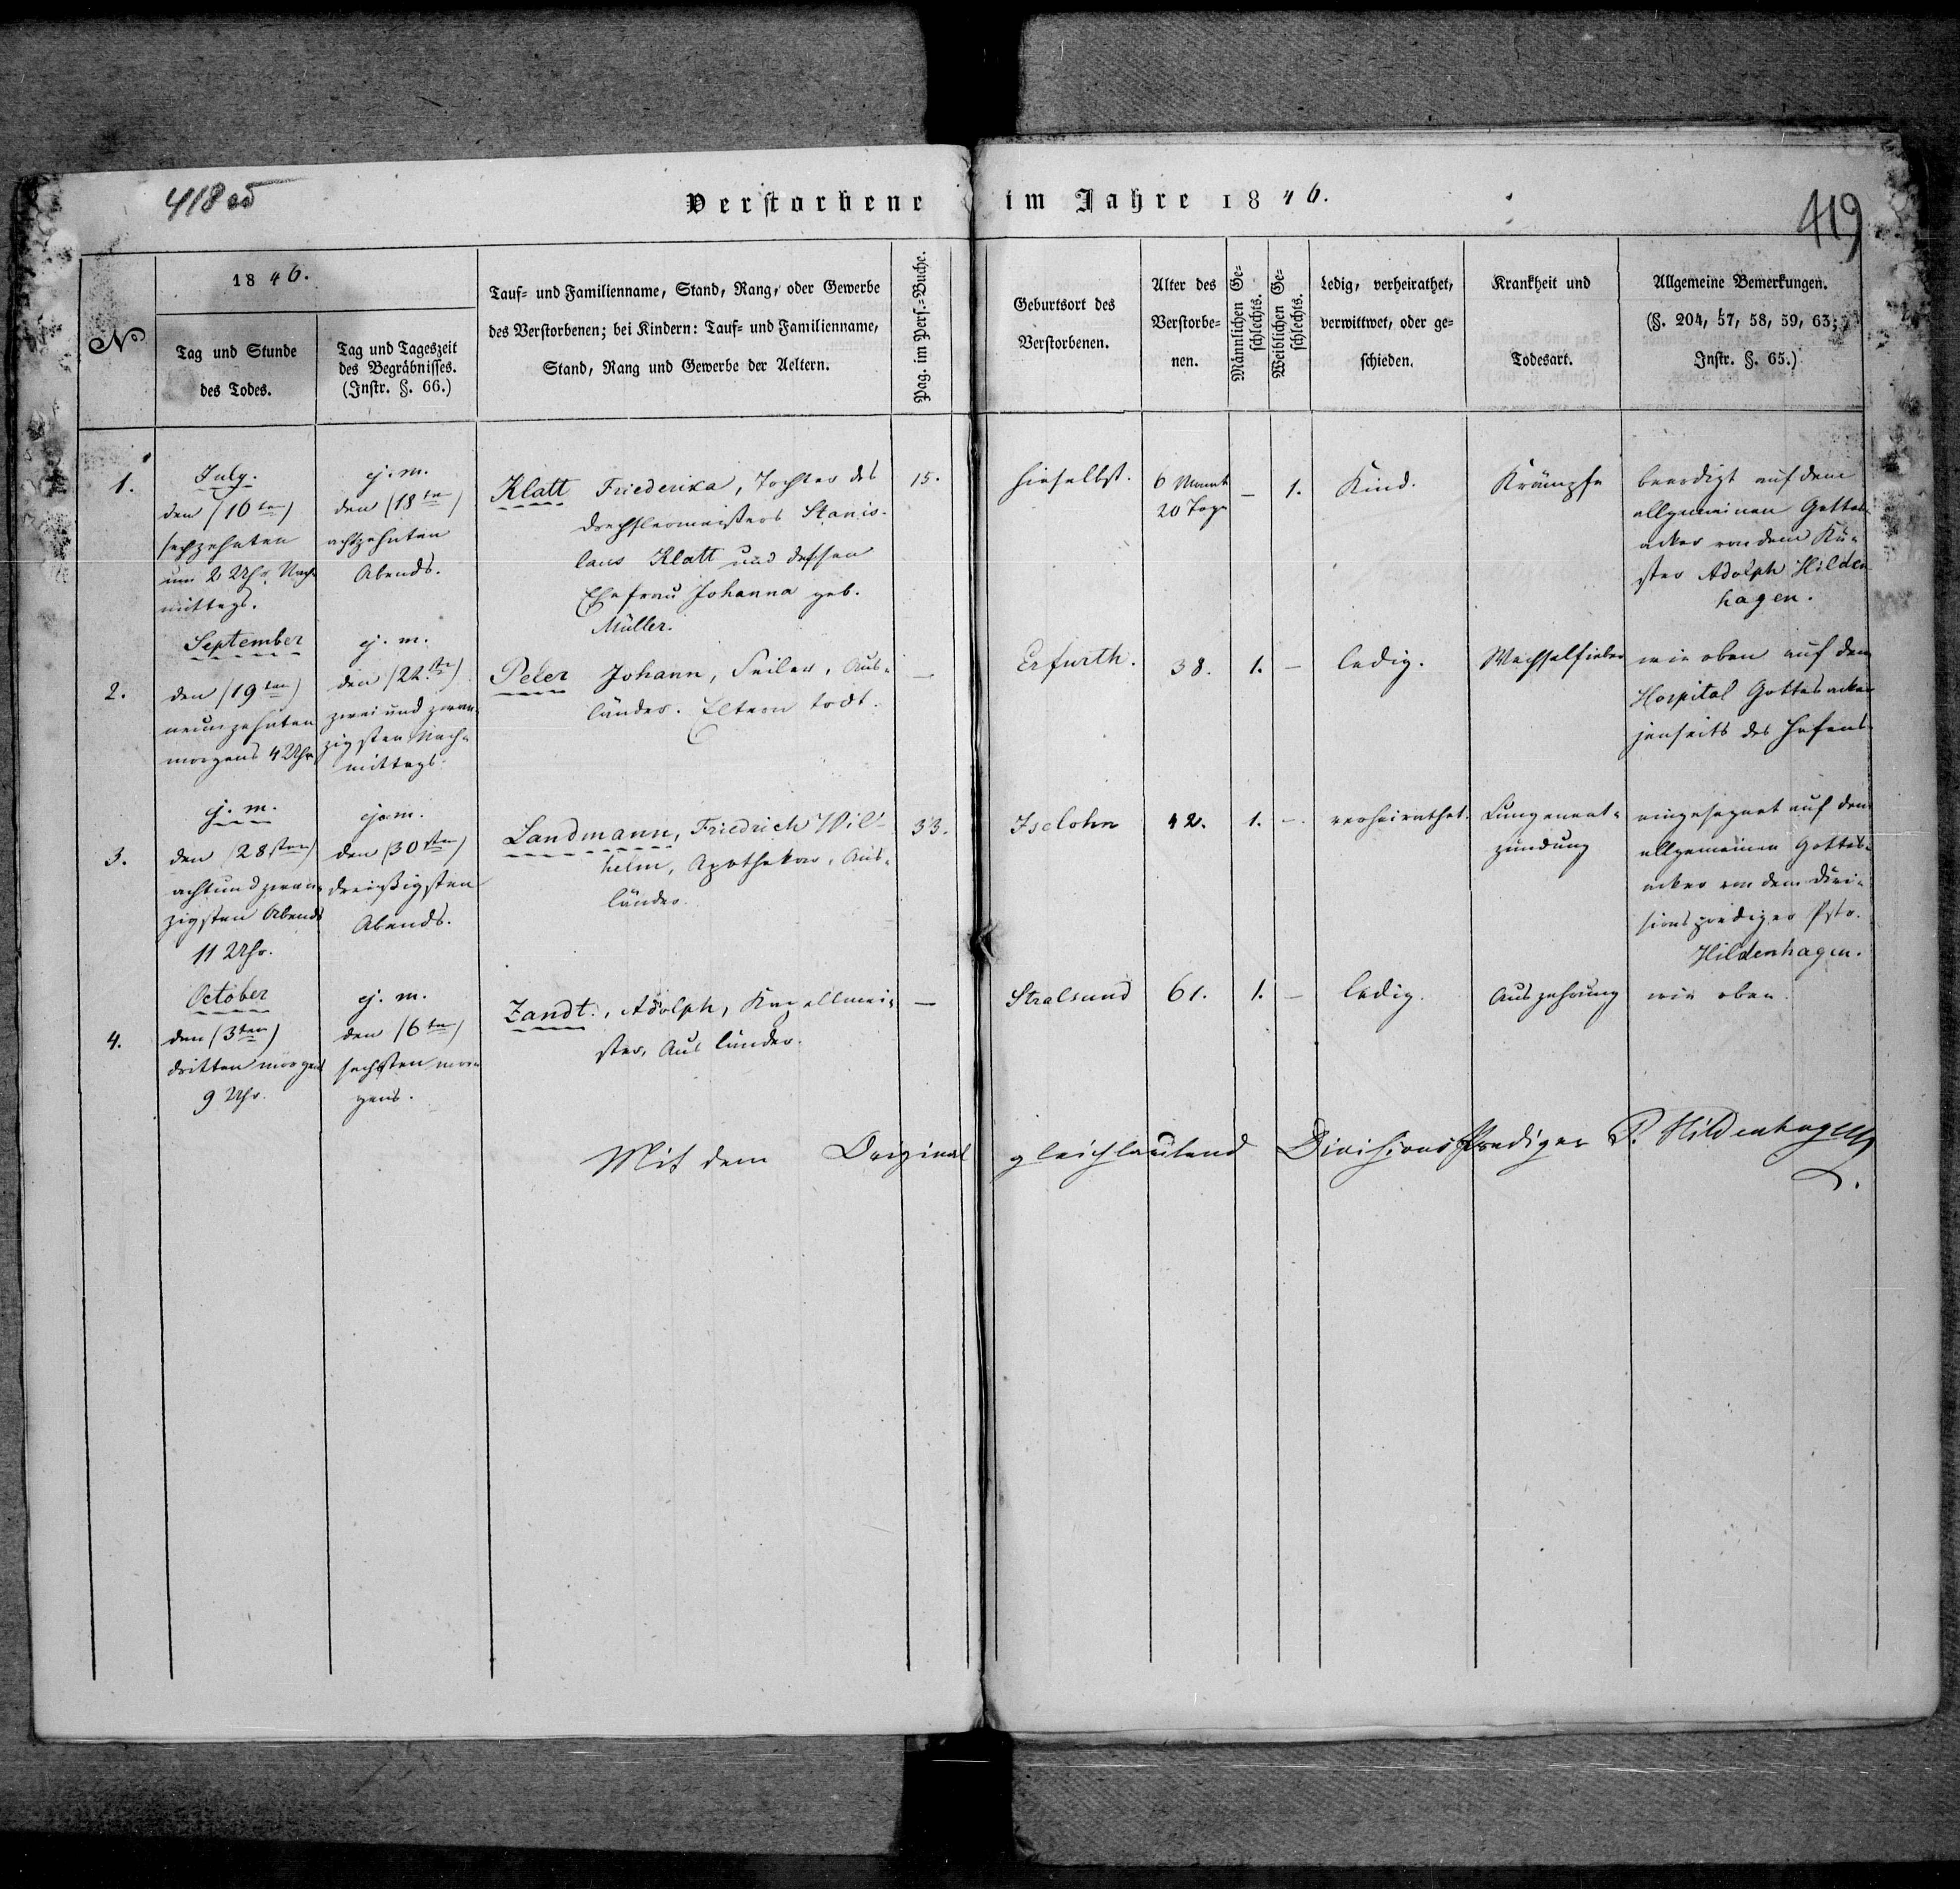 418
419
Verstorbene im Jahre 1846.
No
1846.
Tag und Stunde
des Todes.
Tag und Tageszeit
des Begräbnisses.
(Instr. §. 66.)
Tauf- und Familienname, Stand, Rang, oder Gewerbe
des Verstorbenen; bei Kindern: Tauf- und Familienname,
Stand, Rang und Gewerbe der Aeltern.
Pag. im Pers.-Buche.
Geburtsort des
Verstorbenen.
Alter des
Verstorbe-
nen.
Männlichen Ge-
schlechts.
Weiblichen Ge-
schlechts.
Ledig, verheirathet,
verwittwet, oder ge-
schieden.
Krankheit und
Todesart.
Allgemeine Bemerkungen.
(§. 204, 57, 58, 59, 63;
Instr. §. 65.)
1.
July.
den (16ten)
sechzehnten
um 2 Uhr Nach
mittags.
ej. m.
den (18ten)
achtzehnten
Abends.
Klatt Friederika, Tochter des
Drechslermeisters Stanis-
laus Klatt und dessen
Ehefrau Johanna geb.
Müller.
15.
hieselbst.
6 Monat
20 Tage
–
1.
Kind.
Krämpfe
beerdigt auf dem
allgemeinen Gottes-
acker von dem Kü-
ster Adolph Hilden
hagen.
2.
September
den (19ten)
neunzehnten
morgens 4 Uhr
ej. m.
den (22ten)
zwei und zwan
zigsten Nach-
mittags.
Peler Johann, Seiler, Aus-
länder. Eltern todt.
—
Erfurth.
38.
1.
–
ledig.
Wechselfieber
wie oben auf dem
Hospital Gottesacker
jenseits des Hafens.
3.
ej. m.
den (28sten)
achtundzwan-
zigsten Abends
11 Uhr.
ej. m.
den (30sten)
dreißigsten
Abends.
Landmann, Friedrich Wil-
helm, Apotheker, Aus-
länder.
33.
Iselohn
42.
1.
–.
verheirathet.
Lungenent-
zündung
eingesegnet auf dem
allgemeinen Gottes-
acker von dem Divi-
sionsprediger Pstr.
Hildenhagen.
4.
October
den (3ten)
dritten morgens
9 Uhr.
ej. m.
den (6ten)
sechsten mor-
gens.
Zandt., Adolph, Kapellmei-
ster, Ausländer.
—
Stralsund
61.
1.
–
ledig.
Auszehrung
wie oben.
Mit dem Original gleichlautend Divisions Prediger P. Hildenhagen